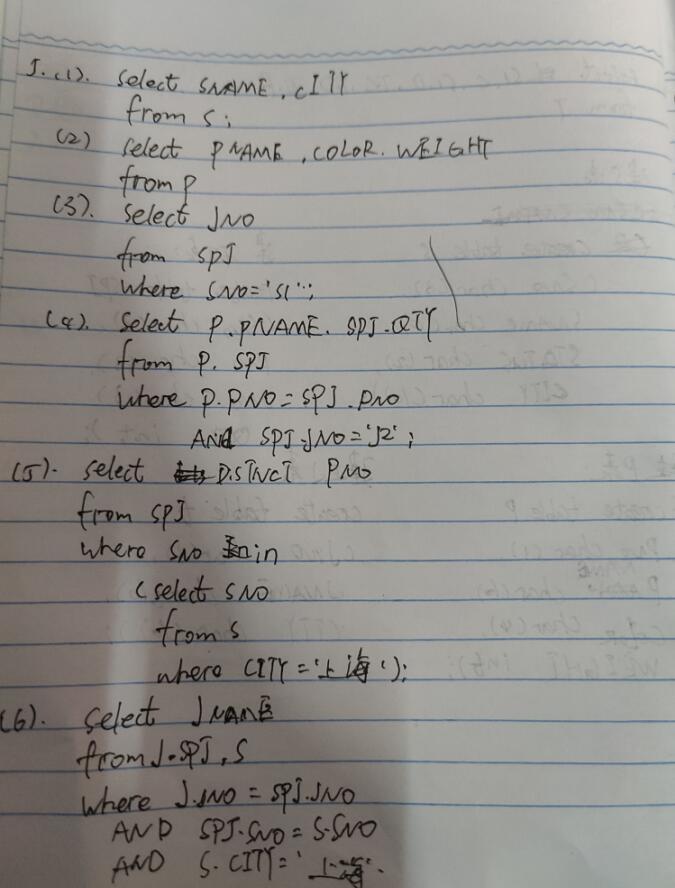 5.(1). select SNAME, CITY
from S;
(2) select PNAME, COLOR. WEIGHT
from P
(3). select JNO
from SPJ
where SNO='S1';
(4). select P.PNAME. SPJ.QTY
from P. SPJ
where P.PNO=SPJ.PNO
AND SPJ.JNO='J2';
(5). select DISTNCT PNO
from SPJ
where SNO in
(select SNO
from S
where CITY='上海');
(6). select JNAME
from J.SPJ,S
where J.JNO=SPJ.JNO
AND SPJ.SNO=S.SNO
AND S.CITY='上海'.